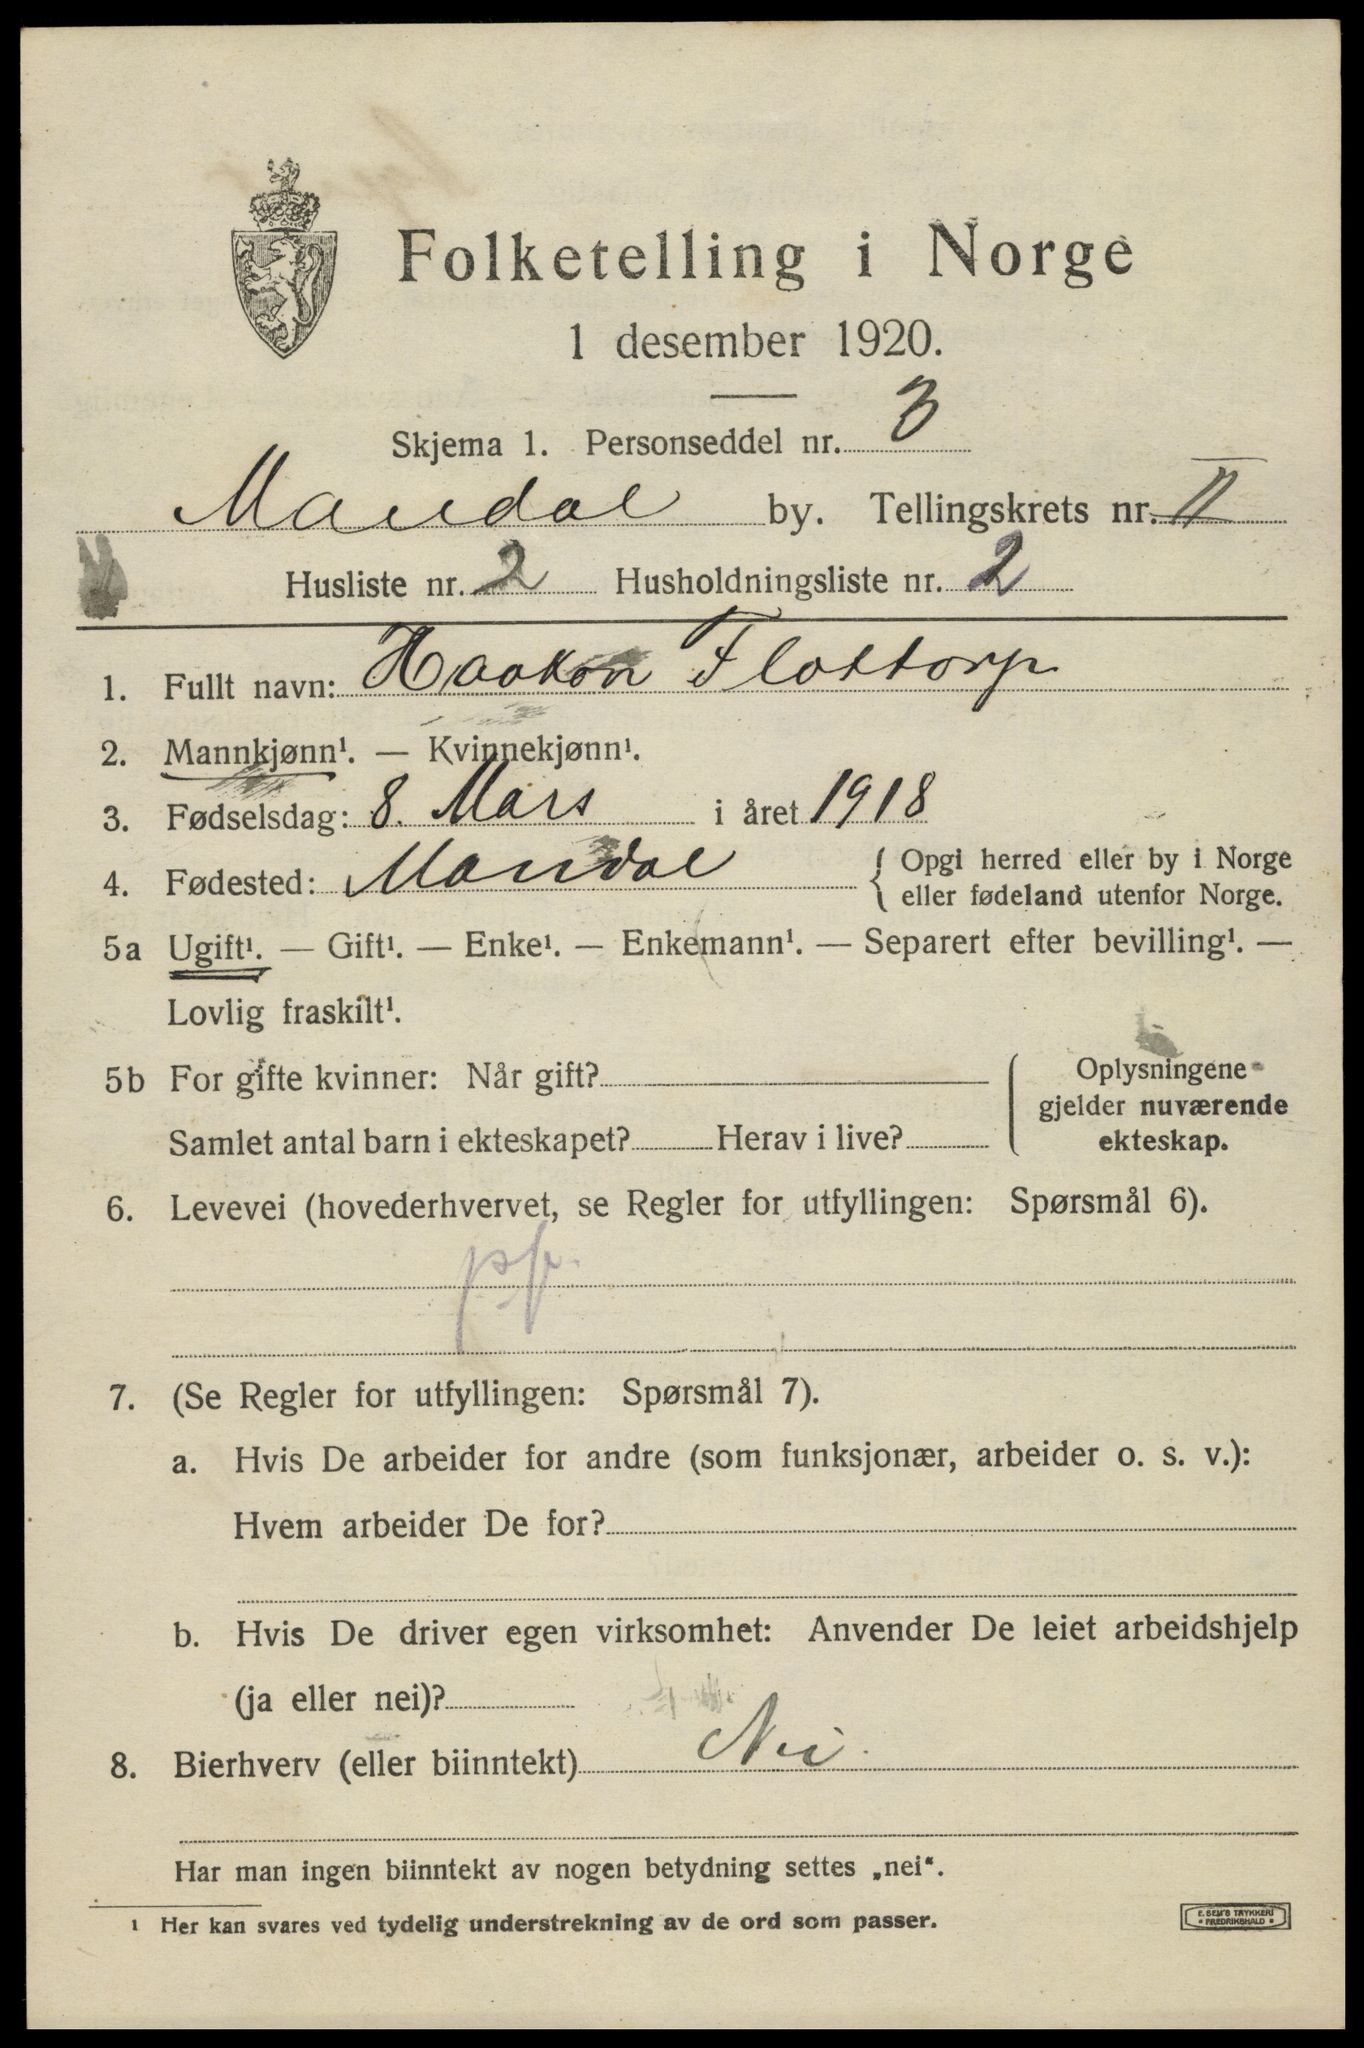 Folketelling i Norge
1 desember 1920.
Skjema 1. Personseddel nr. 3
Mandal by. Tellingskrets nr. II
Husliste nr. 2 Husholdningsliste nr. 2
1. Fullt navn: Haakon Flottorp
2. Mannkjønn¹. — Kvinnekjønn¹.
3. Fødselsdag: 8. Mars i året 1918
4. Fødested: Mandal { Opgi herred eller by i Norge
eller fødeland utenfor Norge.
5a Ugift¹. — Gift¹. — Enke¹. — Enkemann¹. — Separert efter bevilling¹. —
Lovlig fraskilt¹.
5b For gifte kvinner: Når gift?
Samlet antal barn i ekteskapet? Herav i live?
Oplysningene
gjelder nuværende
ekteskap.
6. Levevei (hovederhvervet, se Regler for utfyllingen: Spørsmål 6).
7. (Se Regler for utfyllingen: Spørsmål 7).
a. Hvis De arbeider for andre (som funksjonær, arbeider o. s. v.):
Hvem arbeider De for?
b. Hvis De driver egen virksomhet: Anvender De leiet arbeidshjelp
(ja eller nei)?
8. Bierhverv (eller biinntekt) Nei.
Har man ingen biinntekt av nogen betydning settes „nei“.
¹ Her kan svares ved tydelig understrekning av de ord som passer.
E. SEM'S TRYKKERI
FREDRIKSHALD